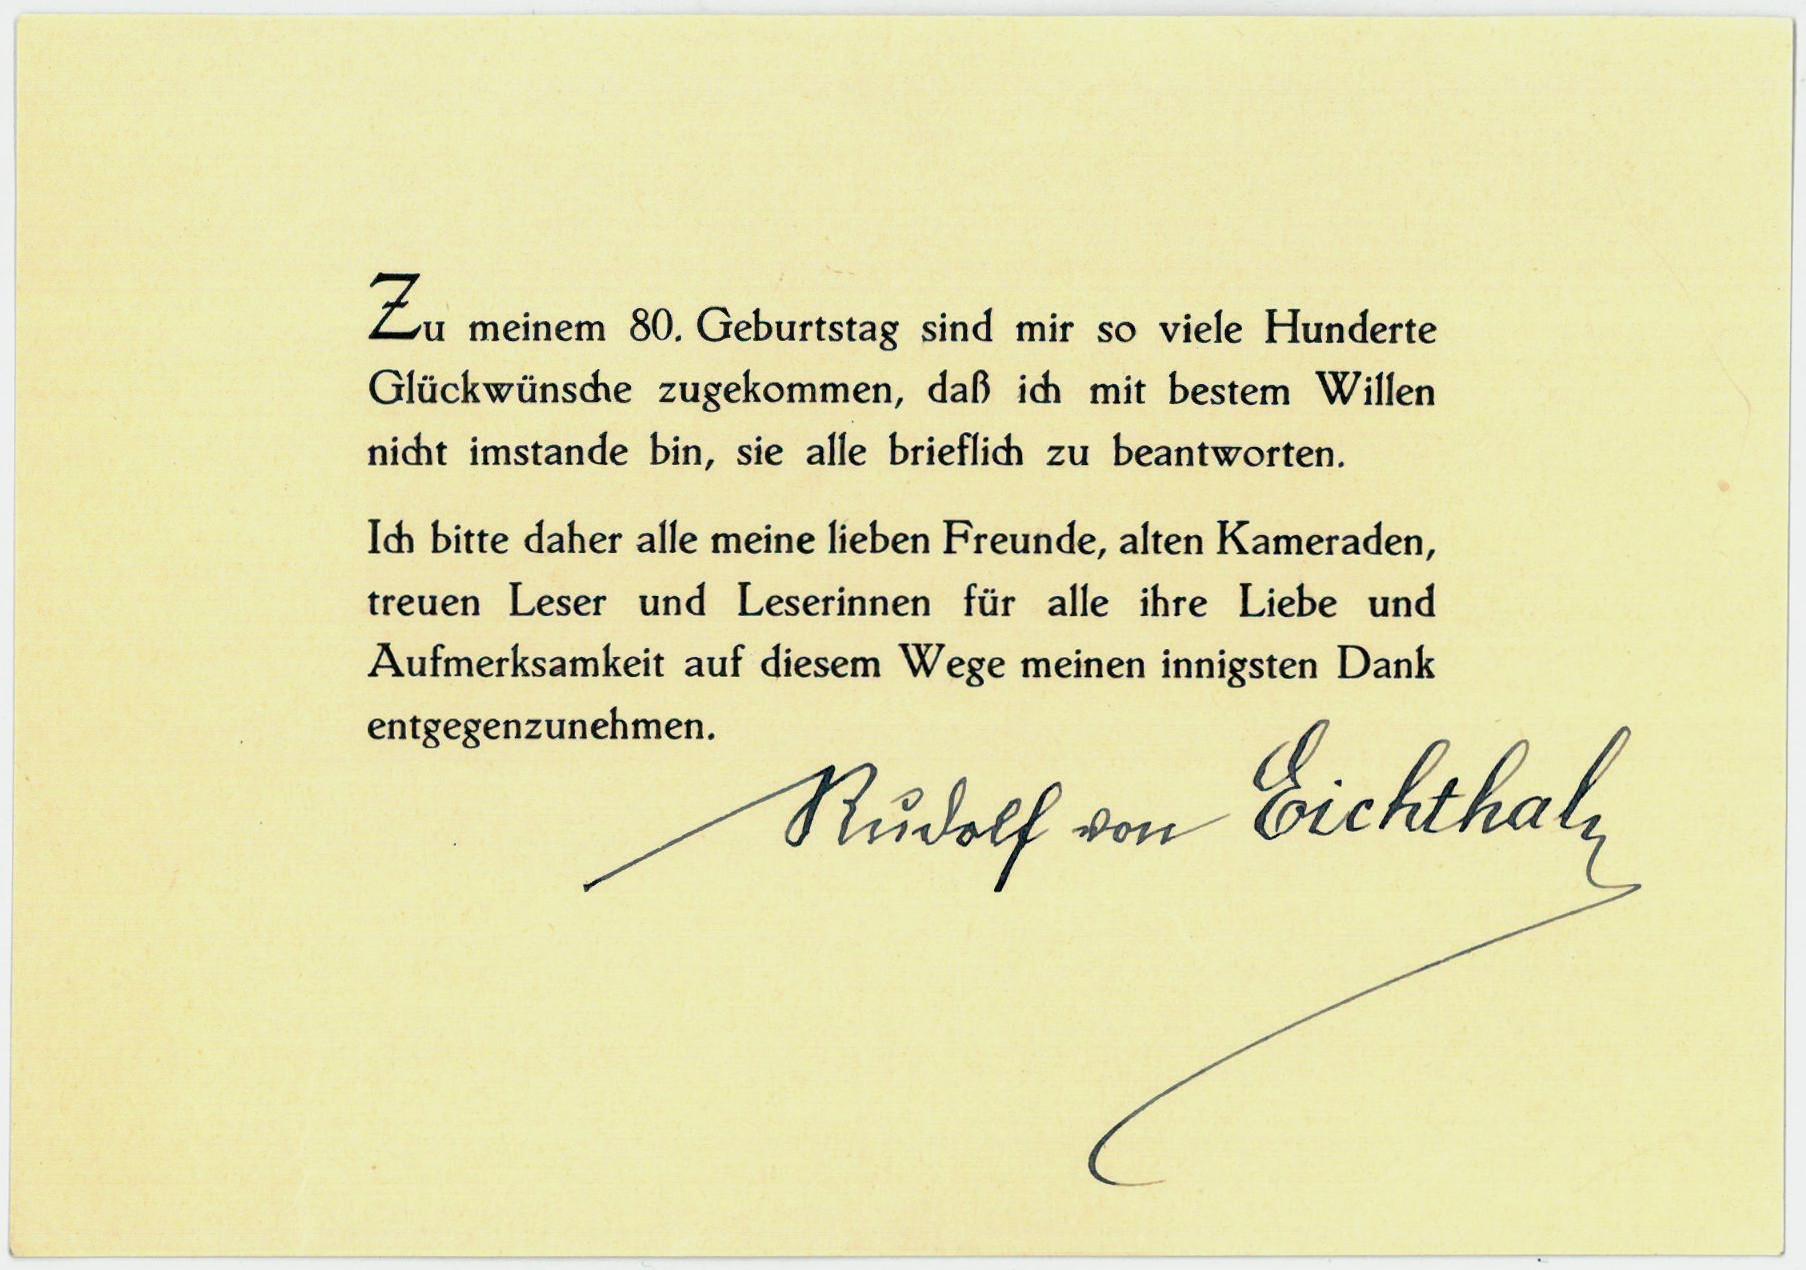 Zu meinem 80. Geburtstag sind mir so viele Hunderte
Glückwünsche zugekommen, daß ich mit bestem Willen
nicht imstande bin, sie alle brieflich zu beantworten.
Ich bitte daher alle meine lieben Freunde, alten Kameraden,
treuen Leser und Leserinnen für alle ihre Liebe und
Aufmerksamkeit auf diesem Wege meinen innigsten Dank
entgegenzunehmen.
Rudolf von Eichthal